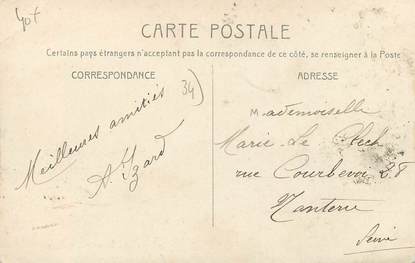 40f
CARTE POSTALE
Certains pays étrangers n'acceptant pas la correspondance de ce côté, se renseigner à la Poste
CORRESPONDANCE
ADRESSE
34)
Meilleures amitiés
A. Izard
Mademoiselle
Marie Le
rue Courbevoie 28
Nanterre
Seine